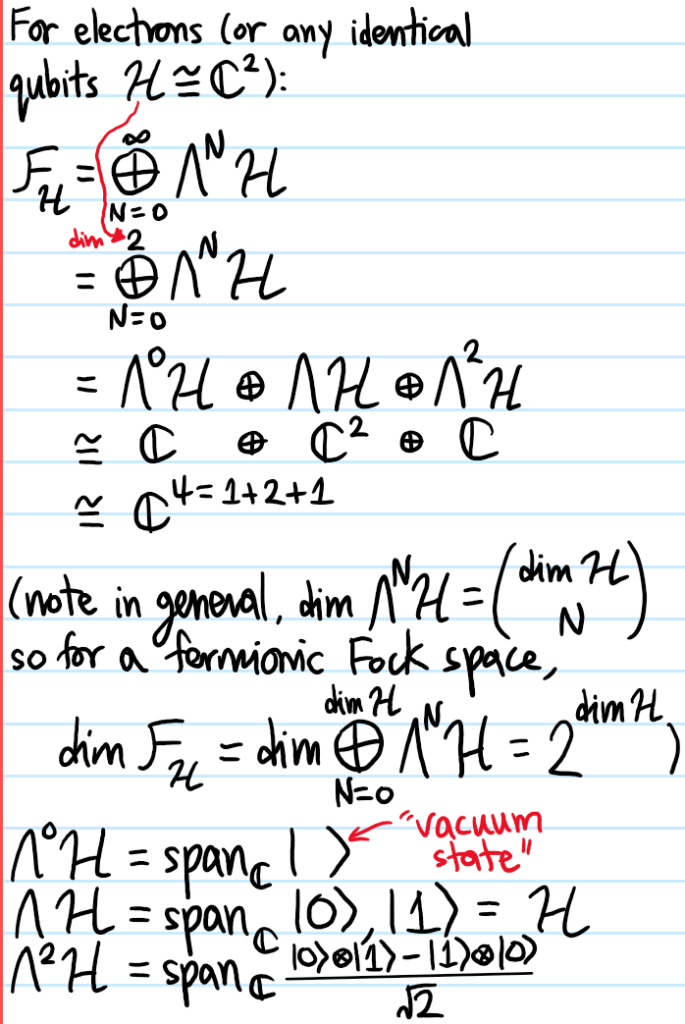 For electrons (or any identical
qubits ℋ ≅ ℂ²):
ℱ_ℋ = ⊕_{N=0}^{∞} Λᴺ ℋ
dim
= ⊕_{N=0}^{2} Λᴺ ℋ
= Λ⁰ℋ ⊕ Λℋ ⊕ Λ²ℋ
≅ ℂ ⊕ ℂ² ⊕ ℂ
≅ ℂ^{4=1+2+1}
(note in general, dim Λᴺℋ = (dim ℋ N)
so for a fermionic Fock space,
dim ℱ_ℋ = dim ⊕_{N=0}^{dim ℋ} Λᴺℋ = 2^{dim ℋ})
"vacuum
state"
Λ⁰ℋ = span_ℂ | ⟩
Λℋ = span_ℂ |0⟩, |1⟩ = ℋ
Λ²ℋ = span_ℂ (|0⟩⊗|1⟩ − |1⟩⊗|0⟩)/√2